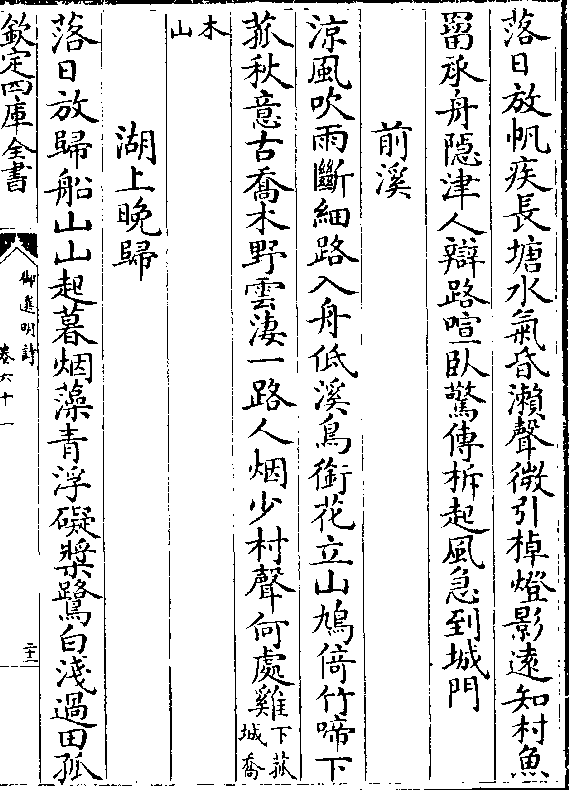 落日放帆疾長塘水氣昏瀨聲微引棹燈影遠知村魚
罶承舟隱津人辯路喧臥驚傳柝起風急到城門
前溪
涼風吹雨斷細路入舟低溪鳥銜花立山鳩倚竹啼下
菰秋意古喬木野雲淒一路人烟少村聲何處雞下菰城喬
木山
湖上晚歸
落日放歸船山山起暮烟藻青浮礙槳鷺白淺過田孤
欽定四庫全書
御選明詩
卷六十一
二十三